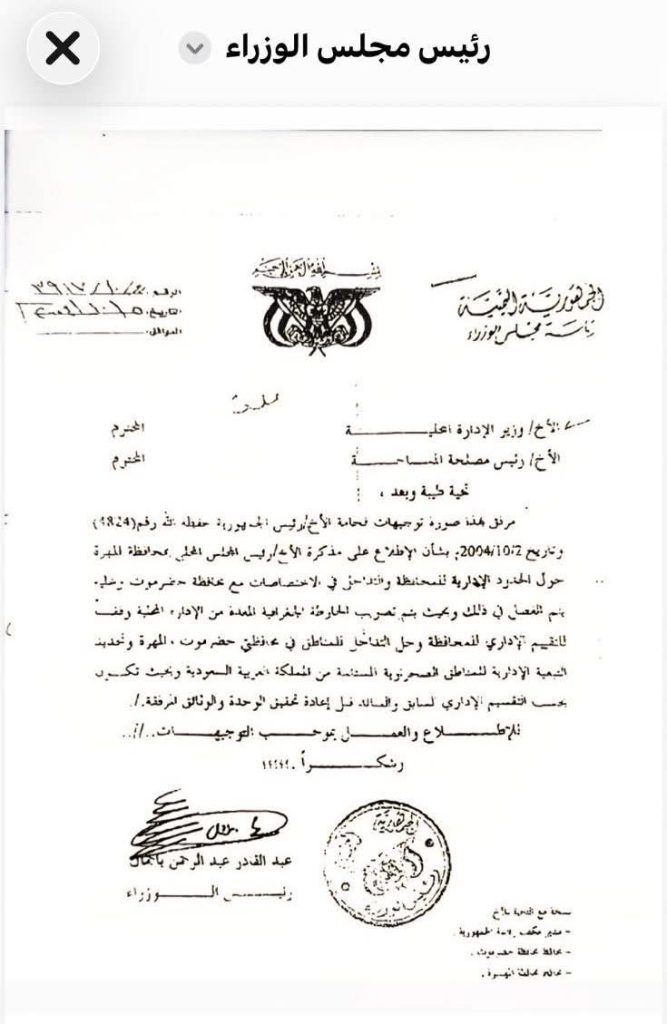 رئيس مجلس الوزراء
الجمهورية اليمنية
رئاسة مجلس الوزراء
بسم الله الرحمن الرحيم
الرقم:
التاريخ:
الموافق:
الأخ/ وزير الإدارة المحلية المحترم
الأخ/ رئيس مصلحة المساحة المحترم
تحية طيبة وبعد ،
مرفق بهذا صورة توجيهات فخامة الأخ/رئيس الجمهورية حفظه الله رقم(4824)
وتاريخ 2004/10/2م بشأن الإطلاع على مذكرة الأخ/رئيس المجلس المحلي بمحافظة المهرة
حول الحدود الإدارية للمحافظة والتداخل في الاختصاصات مع محافظة حضرموت وعليه
يتم الفصل في ذلك وبحيث يتم تصويب الخارطة الجغرافية المعدة من الإدارة المحلية وفقاً
للتقييم الإداري للمحافظة وحل التداخل للمناطق في محافظتي حضرموت ، المهرة وتحديد
التبعية الإدارية للمناطق الصحراوية المستلمة من المملكة العربية السعودية وبحيث تكون
بحسب التقسيم الإداري السابق والسائد قبل إعادة تحقيق الوحدة والوثائق المرفقة./.
للإطلاع والعمل بموجب التوجيهات../..
وشكراً ،،،،،
عبد القادر عبد الرحمن باجمال
رئيس الوزراء
نسخة مع التحية للأخ
- مدير مكتب رئاسة الجمهورية .
- محافظ محافظة حضرموت .
- محافظ محافظة المهرة .